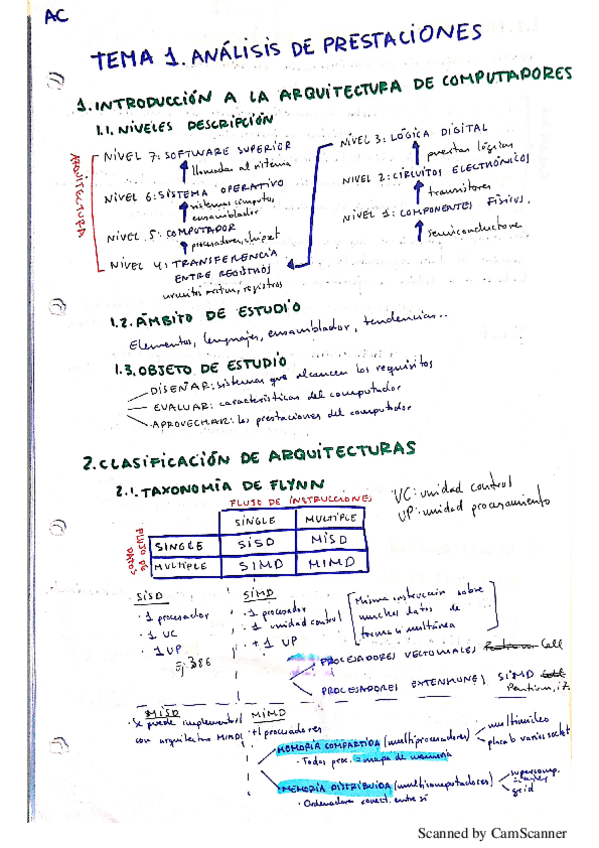 AC
TEMA 1. ANÁLISIS DE PRESTACIONES
1. INTRODUCCIÓN A LA ARQUITECTURA DE COMPUTADORES
1.1. NIVELES DESCRIPCIÓN
ARQUITECTURA
NIVEL 7: SOFTWARE SUPERIOR
llamadas al sistema
NIVEL 6: SISTEMA OPERATIVO
ensamblador
NIVEL 5: COMPUTADOR
procesadores, chipset
NIVEL 4: TRANSFERENCIA
ENTRE REGISTROS
registros
NIVEL 3: LÓGICA DIGITAL
puertas lógicas
NIVEL 2: CIRCUITOS ELECTRÓNICOS
transistores
NIVEL 1: COMPONENTES FÍSICOS.
semiconductore
1.2. ÁMBITO DE ESTUDIO
Elementos, lenguajes, ensamblador, tendencias...
1.3. OBJETO DE ESTUDIO
DISEÑAR: sistemas que alcancen los requisitos
EVALUAR: características del computador
APROVECHAR: las prestaciones del computador
2. CLASIFICACIÓN DE ARQUITECTURAS
2.1. TAXONOMÍA DE FLYNN
UC: unidad control
UP: unidad procesamiento
FLUJO DE INSTRUCCIONES
SINGLE MULTIPLE
FLUJO DE DATOS
SINGLE SISD MISD
MULTIPLE SIMD MIMD
SISD
· 1 procesador
· 1 UC
· 1 UP
Ej 386
SIMD
· 1 procesador
· 1 unidad control
· +1 UP
Misma instrucción sobre
muchos datos de
forma simultánea
PROCESADORES VECTORIALES Cell
PROCESADORES SIMD
Pentium, i7
MISD
· Se puede implementar
con arquitectura MIMD
MIMD
· +1 procesadores
MEMORIA COMPARTIDA (multiprocesadores)
multinúcleo
placa b varios socket
· Todos proc. = mapa de memoria
MEMORIA DISTRIBUIDA (multicomputadores)
supercomp.
cluster
grid
· Ordenadores conect. entre sí
Scanned by CamScanner